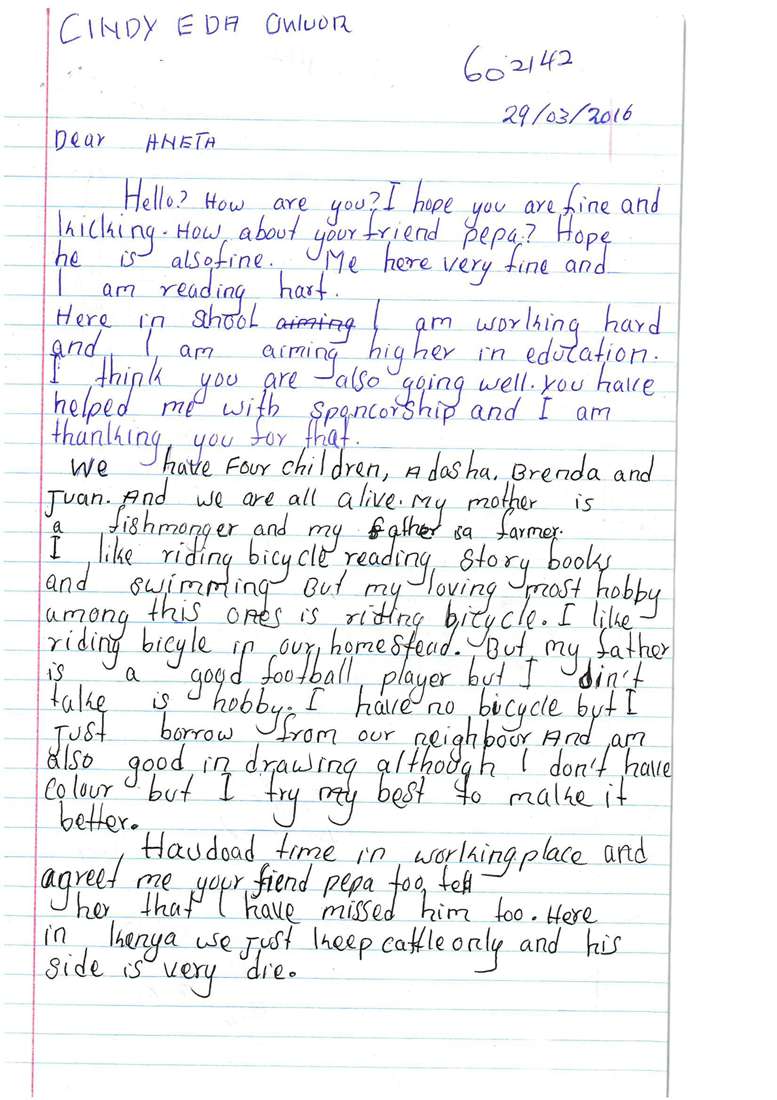 CINDY EDA OWUOR
602142
29/03/2016
Dear ANETA
Hello? How are you? I hope you are fine and
kicking. How about your friend pepa? Hope
he is alsofine. Me here very fine and
I am reading hart.
Here in School aiming I am working hard
and I am aiming higher in education.
I think you are also going well. You have
helped me with Sponcorship and I am
thanking you for that.
We have Four children, Adasha, Brenda and
Juan. And we are all alive. My mother is
a fishmonger and my father isa farmer.
I like riding bicycle reading story books
and swimming But my loving most hobby
among this ones is riding bicycle. I like
riding bicyle in our homestead. But my father
is a good football player but I din't
take is hobby. I have no bicycle but I
Just borrow from our neighbour And am
also good in drawing although I don't have
Colour but I try my best to make it
better.
time in workingplace and
agreet me your fiend pepa too, tell
her that I have missed him too. Here
in kenya we Just keep cattle only and his
side is very die.